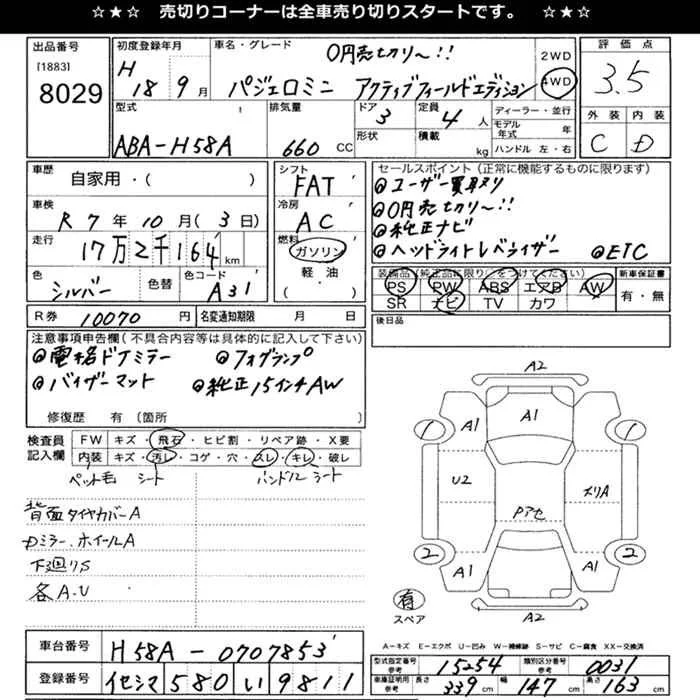 ☆★☆ 売切りコーナーは全車売り切りスタートです。 ☆★☆
出品番号
[1883]
8029
初度登録年月
H 18年 9月
車名・グレード
0円売切り〜!!
パジェロミニ アクティブフィールドエディション
2WD
4WD
評価点
3.5
外装 内装
C D
型式
ABA-H58A
排気量
660 CC
ドア
3
形状
定員
4人
積載
kg
ディーラー・並行
モデル年式 年
ハンドル 左・右
車歴
自家用・( )
車検
R 7年 10月 (3日)
走行
17万2千164 km
色
シルバー
色替
色コード
A31
シフト
FAT
冷房
AC
燃料
ガソリン
軽油
( )
セールスポイント(正常に機能するものに限ります)
◎ユーザー買取り
◎0円売切り〜!!
◎純正ナビ
◎ヘッドライトレベライザー ◎ETC
装備品(純正品に限り)をつけてください
PS PW ABS エアB AW
SR ナビ TV カワ
新車保証書
有・無
R券 10070円
名変通知期限 月 日
後日品
注意事項申告欄(不具合内容等は具体的に記入して下さい)
◎電格ドアミラー ◎フォグランプ
◎バイザーマット ◎純正15インチAW
修復歴 有(箇所 )
検査員記入欄
FW キズ・飛石・ヒビ割・リペア跡・X要
内装 キズ・汚レ・コゲ・穴・スレ・キレ・破レ
ペット毛 シート ハンドル シート
背面タイヤカバーA
Dミラー、ホイールA
下廻りS
各A・U
A2
1 A1 A1 A1 1
U2 Pアセ メリA
2 A1 A1 2
A2
有
スペア
A−キズ E−エクボ U−凹み W−補修跡 S−サビ C−腐食 XX−交換済
車台番号 H58A-0707853
登録番号 イセシマ 580 い 9811
型式指定番号 参考 15254
類別区分番号 参考 0031
車庫証明用 参考 長さ 339cm 幅 147cm 高さ 163cm